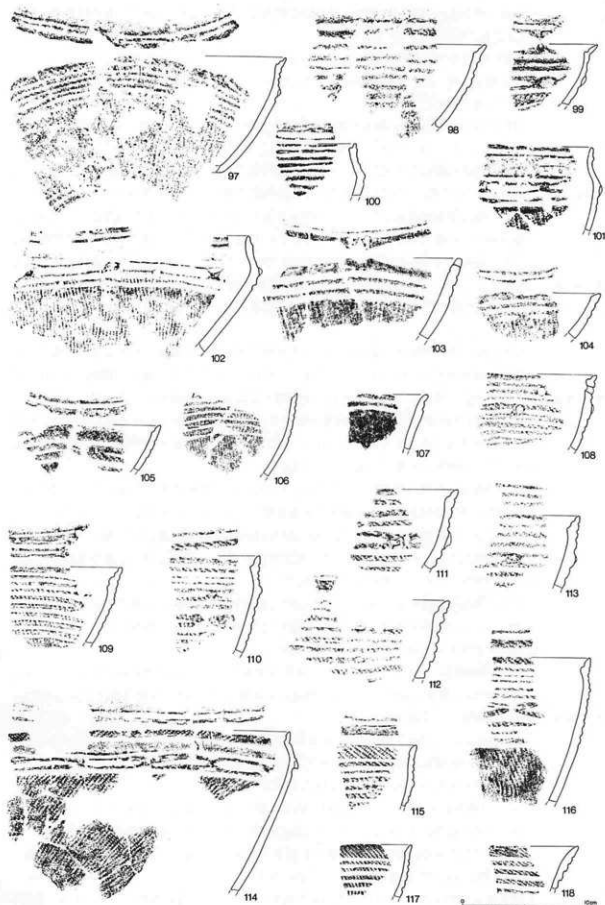 97
98
99
100
101
102
103
104
105
106
107
108
109
110
111
112
113
114
115
116
117
118
0 10cm